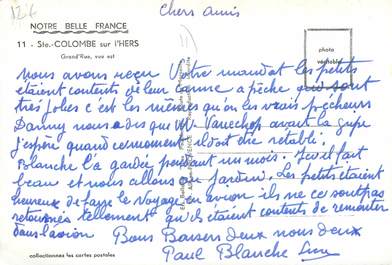 126
Chers amis
NOTRE BELLE FRANCE
11 - Ste-COLOMBE sur l'HERS
Grand'Rue, vue est
photo
véritable
Nous avons reçu Votre mandat les petits
étaient contents de leur canne a pêche qui sont
très jolies c'est les mêmes qu'on les vrais pêcheurs
Danny nous a dis que Mr Vanechop avait la gripe
j'espère quand ce moment il doit être rétabli
Blanche l'a gardée pendant un mois. Ici il fait
beau et nous allons au jardin. Les petits étaient
heureux de faire le voyage en avion ils ne ce sont pas
retournés tellement qu'ils étaient contents de remonter
dans l'avion Bons Baisers Deux nous deux
Paul Blanche
collectionnez les cartes postales